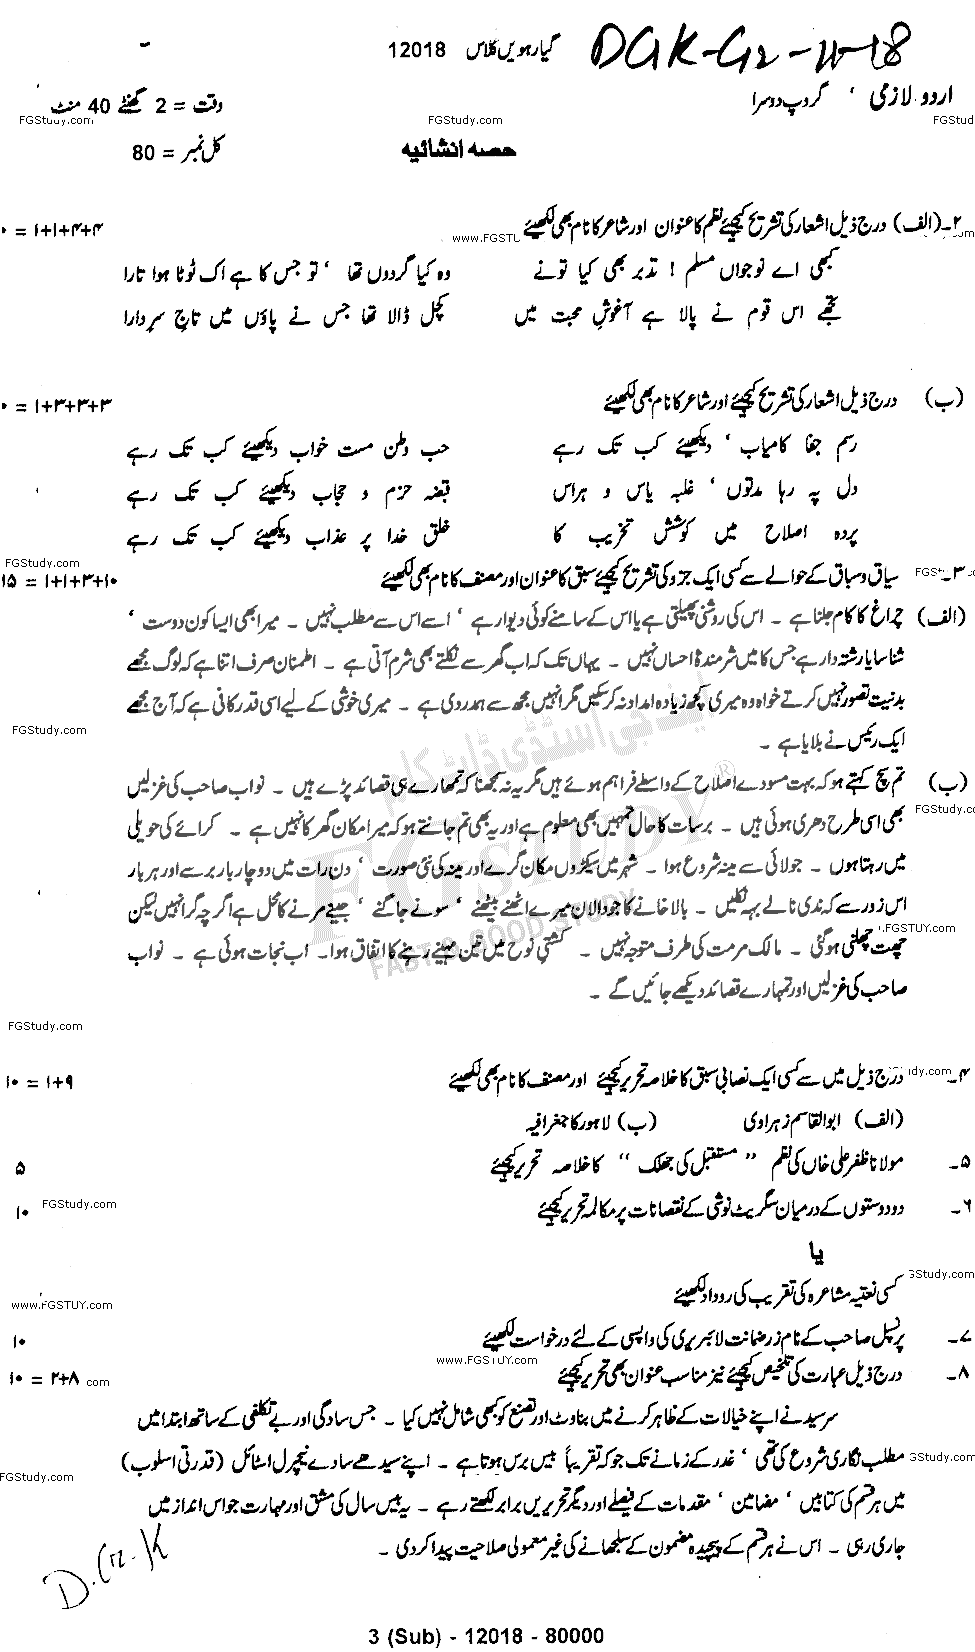 DGK-G2-11-18
گیارھویں کلاس 12018
اردو لازمی ، گروپ دوسرا
وقت = 2 گھنٹے 40 منٹ
FGStudy.com FGStudy.com FGStud
حصہ انشائیہ
کل نمبر = 80
۲۔ (الف) درج ذیل اشعار کی تشریح کیجئے نظم کا عنوان اور شاعر کا نام بھی لکھیئے ۴+۴+۱+۱ = ۰
www.FGSTU om
کبھی اے نوجواں مسلم ! تدبر بھی کیا تونے وہ کیا گردوں تھا ‘ تو جس کا ہے اک ٹوٹا ہوا تارا
تجھے اس قوم نے پالا ہے آغوشِ محبت میں کچل ڈالا تھا جس نے پاؤں میں تاجِ سرِ دارا
(ب) درج ذیل اشعار کی تشریح کیجئے اور شاعر کا نام بھی لکھیئے ۳+۳+۳+۱ = ۰
رسم جفا کامیاب ‘ دیکھیئے کب تک رہے حب وطن مست خواب دیکھیئے کب تک رہے
دل پہ رہا مدتوں ‘ غلبہ یاس و ہراس قبضہ حزم و حجاب دیکھیئے کب تک رہے
پردہ اصلاح میں کوشش تخریب کا خلق خدا پر عذاب دیکھیئے کب تک رہے
FGStudy.com
۳۔ سیاق و سباق کے حوالے سے کسی ایک جزو کی تشریح کیجئے سبق کا عنوان اور مصنف کا نام بھی لکھیئے ۱۰+۳+۱+۱ = ۱۵
(الف) چراغ کا کام جلنا ہے ۔ اس کی روشنی پھیلتی ہے یا اس کے سامنے کوئی دیوار ہے ‘ اسے اس سے مطلب نہیں ۔ میرا بھی ایسا کون دوست ‘
شناسا یا رشتہ دار ہے جس کا میں شرمندۂ احساں نہیں ۔ یہاں تک کہ اب گھر سے نکلتے بھی شرم آتی ہے ۔ اطمنان صرف اتنا ہے کہ لوگ مجھے
بدنیت تصور نہیں کرتے خواہ وہ میری کچھ زیادہ امداد نہ کر سکیں مگر انہیں مجھ سے ہمدردی ہے ۔ میری خوشی کے لیے اسی قدر کافی ہے کہ آج مجھے
FGStudy.com
ایک رئیس نے بلایا ہے ۔
ایف جی اسٹڈی ڈاٹ کام
FGSTUDY®
FAST & GOOD STUDY
(ب) تم سچ کہتے ہو کہ بہت مسودے اصلاح کے واسطے فراہم ہوئے ہیں مگر یہ نہ سمجھنا کہ تمہارے ہی قصائد پڑے ہیں ۔ نواب صاحب کی غزلیں
بھی اسی طرح دھری ہوئی ہیں ۔ برسات کا حال تمہیں بھی معلوم ہے اور یہ بھی تم جانتے ہو کہ میرا مکان گھر کا نہیں ہے ۔ کرائے کی حویلی
FGStudy.co
میں رہتا ہوں ۔ جولائی سے مینہ شروع ہوا ۔ شہر میں سیکڑوں مکان گرے اور مینہ کی نئی صورت ‘ دن رات میں دو چار بار برسے اور ہر بار
اس زور سے کہ ندی نالے بہہ نکلیں ۔ بالا خانے کا جو دالان میرے اٹھنے بیٹھنے ‘ سونے جاگنے ‘ جینے مرنے کا محل ہے اگرچہ گرا نہیں لیکن
.FGSTUY.com
چھت چھلنی ہو گئی ۔ مالک مرمت کی طرف متوجہ نہیں ۔ کشتی نوح میں تین مہینے رہنے کا اتفاق ہوا ۔ اب نجات ہوئی ہے ۔ نواب
صاحب کی غزلیں اور تمہارے قصائد دیکھے جائیں گے ۔
FGStudy.com
۴۔ درج ذیل میں سے کسی ایک نصابی سبق کا خلاصہ تحریر کیجئے اور مصنف کا نام بھی لکھیئے ۹+۱ = ۱۰
dy.com
(الف) ابوالقاسم زہراوی (ب) لاہور کا جغرافیہ
۵۔ مولانا ظفر علی خاں کی نظم “ مستقبل کی جھلک ” کا خلاصہ تحریر کیجئے ۵
۶۔ دو دوستوں کے درمیان سگریٹ نوشی کے نقصانات پر مکالمہ تحریر کیجئے ۱۰
FGStudy.com
یا
GStudy.com
کسی نعتیہ مشاعرہ کی تقریب کی روداد لکھیئے
www.FGSTUY.com
۷۔ پرنسپل صاحب کے نام زرِ ضمانت لائبریری کی واپسی کے لئے درخواست لکھیئے ۱۰
www.FGSTUY.com
۸۔ درج ذیل عبارت کی تلخیص کیجئے نیز مناسب عنوان بھی تحریر کیجئے ۲+۸ = ۱۰
com
سرسید نے اپنے خیالات کے ظاہر کرنے میں بناوٹ اور تصنع کو کبھی شامل نہیں کیا ۔ جس سادگی اور بے تکلفی کے ساتھ ابتدا میں
مطلب نگاری شروع کی تھی ‘ غدر کے زمانے تک جو کہ تقریباً بیس برس ہوتا ہے ۔ اپنے سیدھے سادے نیچرل اسٹائل (قدرتی اسلوب)
GStudy.com
FGStudy.com
میں ہر قسم کی کتابیں ‘ مضامین ‘ مقدمات کے فیصلے اور دیگر تحریریں برابر لکھتے رہے ۔ یہ بیس سال کی مشق اور مہارت جو اس انداز میں
جاری رہی ۔ اس نے ہر قسم کے پیچیدہ مضمون کے سلجھانے کی غیر معمولی صلاحیت پیدا کر دی ۔
D.G.K
3 (Sub) - 12018 - 80000